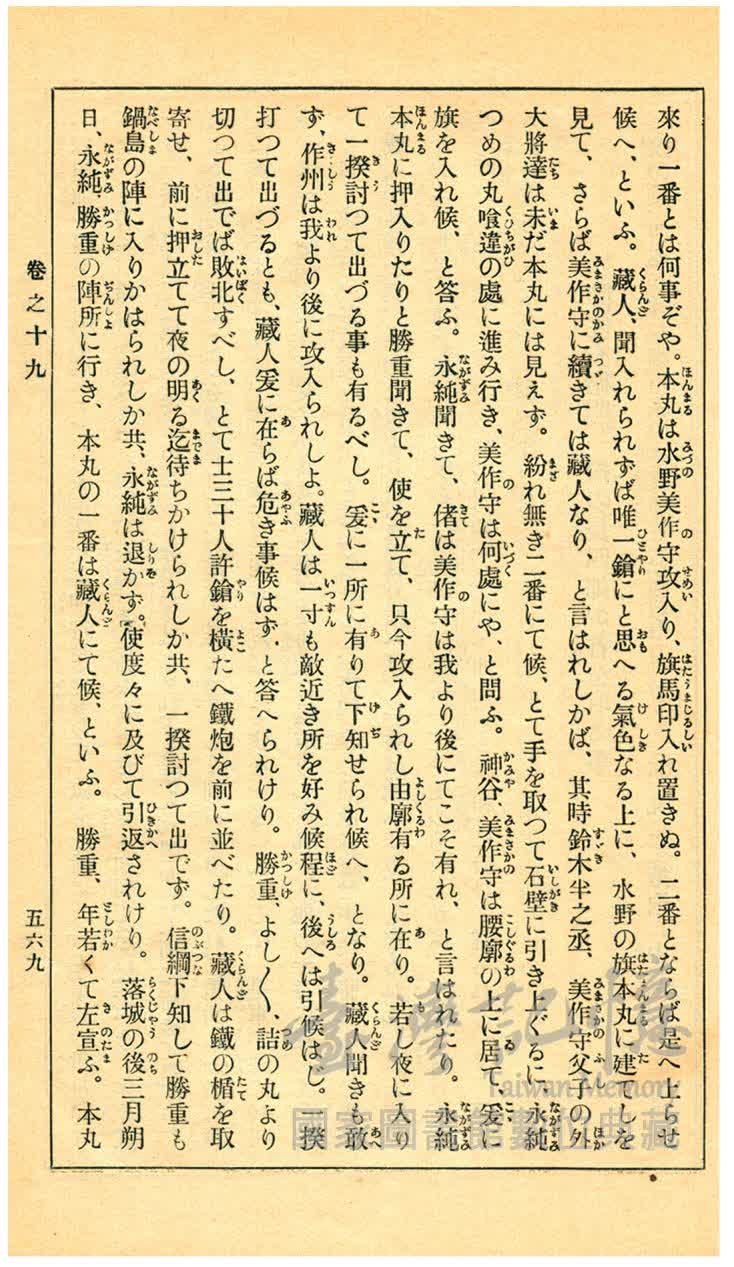 來り一番とは何事ぞや。本丸は水野美作守攻入り、旗馬印入れ置きぬ。二番とならば是へ上らせ
候へ、といふ。藏人、聞入れられずば唯一鎗にと思へる氣色なる上に、水野の旗本丸に建てしを
見て、さらば美作守に續きては藏人なり、と言はれしかば、其時鈴木半之丞、美作守父子の外
大將達は未だ本丸には見えず。紛れ無き二番にて候、とて手を取つて石壁に引き上ぐるに、永純
つめの丸喰違の處に進み行き、美作守は何處にや、と問ふ。神谷、美作守は腰廓の上に居て、爰に
旗を入れ候、と答ふ。永純聞きて、偖は美作守は我より後にてこそ有れ、と言はれたり。永純
本丸に押入りたりと勝重聞きて、使を立て、只今攻入られし由廓有る所に在り。若し夜に入り
て一揆討つて出づる事も有るべし。爰に一所に有りて下知せられ候へ、となり。藏人聞きも敢
ず、作州は我より後に攻入られしよ。藏人は一寸も敵近き所を好み候程に、後へは引候はじ。一揆
打つて出づるとも、藏人爰に在らば危き事候はず、と答へられけり。勝重、よし〱、詰の丸より
切つて出でば敗北すべし、とて士三十人許鎗を橫たへ鐵炮を前に並べたり。藏人は鐵の楯を取
寄せ、前に押立てて夜の明る迄待ちかけられしか共、一揆討つて出でず。信綱下知して勝重も
鍋島の陣に入りかはられしか共、永純は退かず。使度々に及びて引返されけり。落城の後三月朔
日、永純、勝重の陣所に行き、本丸の一番は藏人にて候、といふ。勝重、年若くて左宣ふ。本丸
卷之十九
五六九
臺灣記憶
Taiwan Memory
國家圖書館藝術典藏